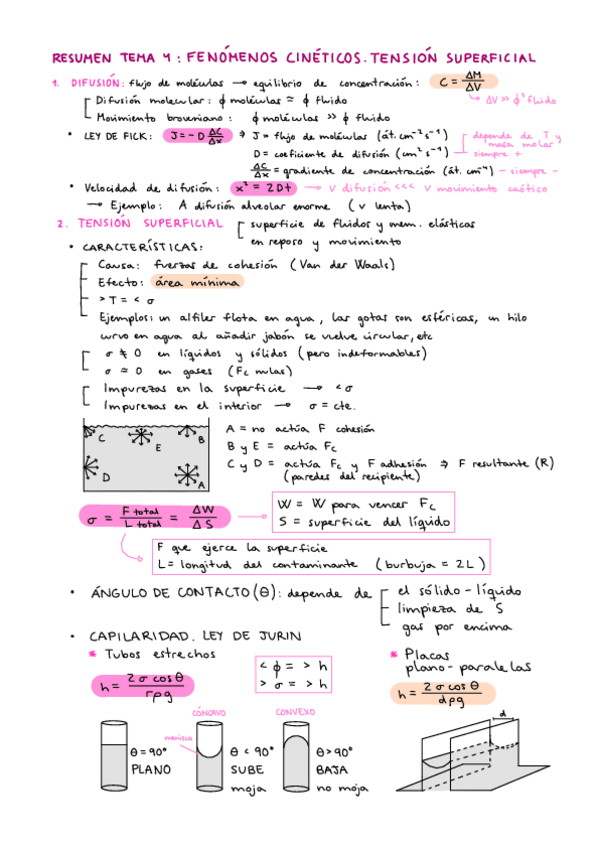 RESUMEN TEMA 4: FENÓMENOS CINÉTICOS. TENSIÓN SUPERFICIAL
1. DIFUSIÓN: flujo de moléculas → equilibrio de concentración: C = ΔM/ΔV
Difusión molecular: ϕ moléculas ≃ ϕ fluido → ΔV >> ϕ³ fluido
Movimiento browniano: ϕ moléculas >> ϕ fluido
• LEY DE FICK: J = - D ΔC/Δx ⇒ J = flujo de moléculas (át. cm⁻² s⁻¹) depende de T y masa molar
D = coeficiente de difusión (cm² s⁻¹) — siempre +
ΔC/Δx = gradiente de concentración (át. cm⁻⁴) — siempre -
• Velocidad de difusión: x² = 2Dt → v difusión <<< v movimiento caótico
→ Ejemplo: A difusión alveolar enorme (v lenta)
2. TENSIÓN SUPERFICIAL superficie de fluidos y mem. elásticas
en reposo y movimiento
• CARACTERÍSTICAS:
Causa: fuerzas de cohesión (Van der Waals)
Efecto: área mínima
> T = < σ
Ejemplos: un alfiler flota en agua, las gotas son esféricas, un hilo
curvo en agua al añadir jabón se vuelve circular, etc
σ ≠ 0 en líquidos y sólidos (pero indeformables)
σ ≃ 0 en gases (Fc nulas)
Impurezas en la superficie → < σ
Impurezas en el interior → σ = cte.
C E B D A
A = no actúa F cohesión
B y E = actúa Fc
C y D = actúa Fc y F adhesión ⇒ F resultante (R)
(paredes del recipiente)
σ = F total / L total = ΔW / ΔS
W = W para vencer Fc
S = superficie del líquido
F que ejerce la superficie
L = longitud del contaminante (burbuja = 2L)
• ÁNGULO DE CONTACTO (θ): depende de el sólido-líquido
limpieza de S
gas por encima
• CAPILARIDAD. LEY DE JURIN
* Tubos estrechos
h = 2 σ cos θ / rρg
< ϕ = > h
> σ = > h
* Placas
plano-paralelas
h = 2 σ cos θ / dρg
CÓNCAVO CONVEXO d
menisco
θ = 90° θ < 90° θ > 90°
PLANO SUBE BAJA
moja no moja